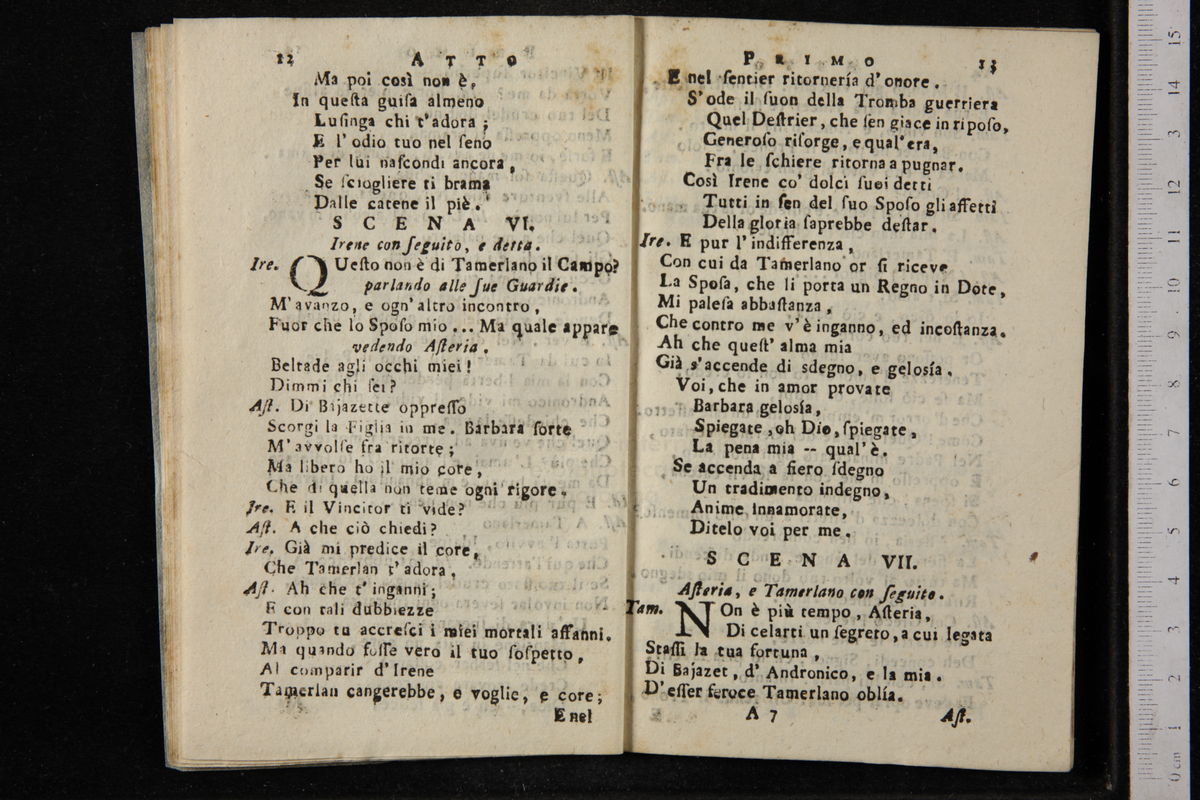 12 ATTO
Ma poi così non è,
In queſta guiſa almeno
Luſinga chi t'adora;
E l'odio tuo nel ſeno
Per lui naſcondi ancora,
Se ſciogliere ti brama
Dalle catene il piè.
SCENA VI.
Irene con ſeguito, e detta.
Ire. QUeſto non è di Tamerlano il Campo?
parlando alle ſue Guardie.
M'avanzo, e ogn'altro incontro,
Fuor che lo Spoſo mio ... Ma quale appare
vedendo Aſteria.
Beltade agli occhi miei!
Dimmi chi ſei?
Aſt. Di Bajazette oppreſſo
Scorgi la Figlia in me. Barbara ſorte
M'avvolſe fra ritorte;
Ma libero ho il mio core,
Che di quella non teme ogni rigore.
Ire. E il Vincitor ti vide?
Aſt. A che ciò chiedi?
Ire. Già mi predice il core,
Che Tamerlan t'adora.
Aſt. Ah che t'inganni;
E con tali dubbiezze
Troppo tu accreſci i miei mortali affanni.
Ma quando foſſe vero il tuo ſoſpetto,
Al comparir d'Irene
Tamerlan cangerebbe, e voglie, e core;
E nel
PRIMO 13
E nel ſentier ritornería d'onore.
S'ode il ſuon della Tromba guerriera
Quel Deſtrier, che ſen giace in ripoſo,
Generoſo riſorge, e qual'era,
Fra le ſchiere ritorna a pugnar.
Così Irene co' dolci ſuoi detti
Tutti in ſen del ſuo Spoſo gli affetti
Della gloria ſaprebbe deſtar.
Ire. E pur l'indifferenza,
Con cui da Tamerlano or ſi riceve
La Spoſa, che li porta un Regno in Dote,
Mi paleſa abbaſtanza,
Che contro me v'è inganno, ed incoſtanza.
Ah che queſt' alma mia
Già s'accende di sdegno, e geloſía.
Voi, che in amor provate
Barbara geloſía,
Spiegate, oh Dio, ſpiegate,
La pena mia -- qual'è.
Se accenda a fiero ſdegno
Un tradimento indegno,
Anime innamorate,
Ditelo voi per me.
SCENA VII.
Aſteria, e Tamerlano con ſeguito.
Tam. NOn è più tempo, Aſteria,
Di celarti un ſegreto, a cui legata
Staſſi la tua fortuna,
Di Bajazet, d'Andronico, e la mia.
D'eſſer feroce Tamerlano oblía.
A 7 Aſt.
0 cm 1 2 3 4 5 6 7 8 9 10 11 12 13 14 15